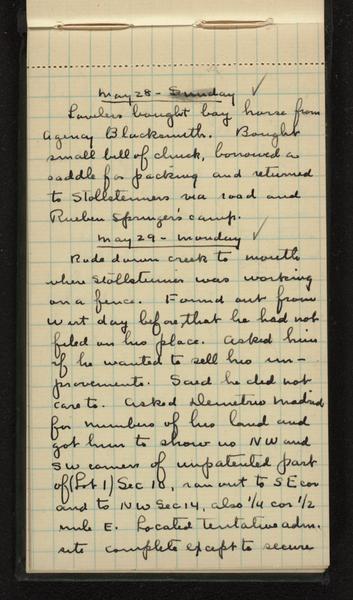 May 28 - Sunday
Lawlers bought bay horse from
Agency Blacksmith. Bought
small bill of chuck, borrowed a
saddle for packing and returned
to Stollsteimers via road and
Rueben Springer's camp.
May 29 - Monday
Rode down creek to mouth
where Stollsteimer was working
on a fence. Found out from
Wirt day before, that he had not
filed on his place. Asked him
if he wanted to sell his im-
provements. Said he did not
care to. Asked Demetrio Madrid
for numbers of his land and
got him to show us NW and
SW corners of unpatented part
of (Lot 1) Sec 10, ran out to SE cor
and to NW Sec 14, also 1/4 cor 1/2
mile E. Located tentative adm.
site complete except to secure